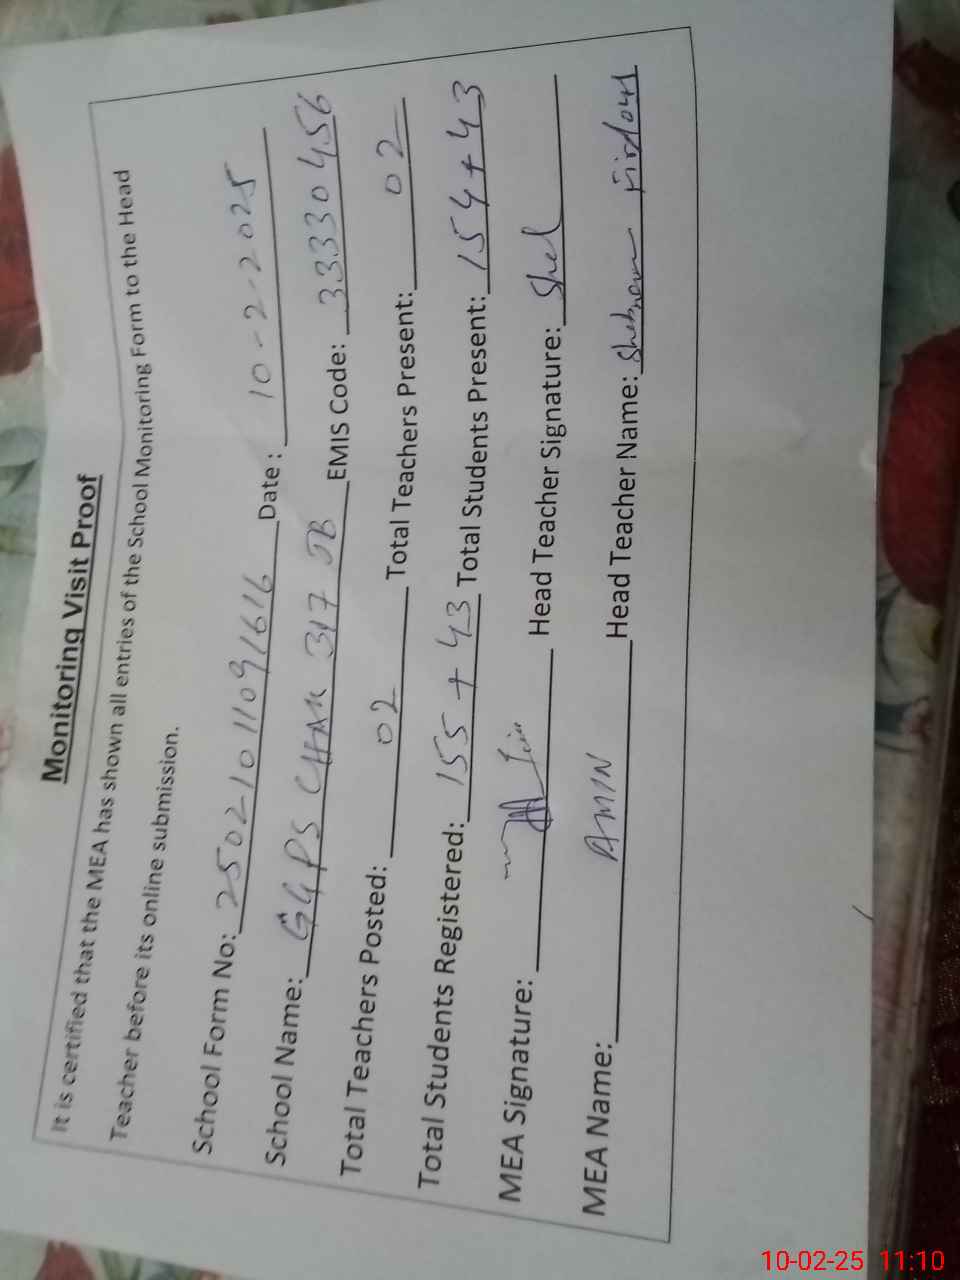 Monitoring Visit Proof
It is certified that the MEA has shown all entries of the School Monitoring Form to the Head
Teacher before its online submission.
School Form No: 25021011091616 Date: 10-2-2025
School Name: GGPS CHAK 317 JB EMIS Code: 33330456
Total Teachers Posted: 02 Total Teachers Present: 02
Total Students Registered: 155 + 43 Total Students Present: 154 + 43
MEA Signature: Head Teacher Signature:
MEA Name: AMIN Head Teacher Name: Shabnam Firdous
10-02-25 11:10